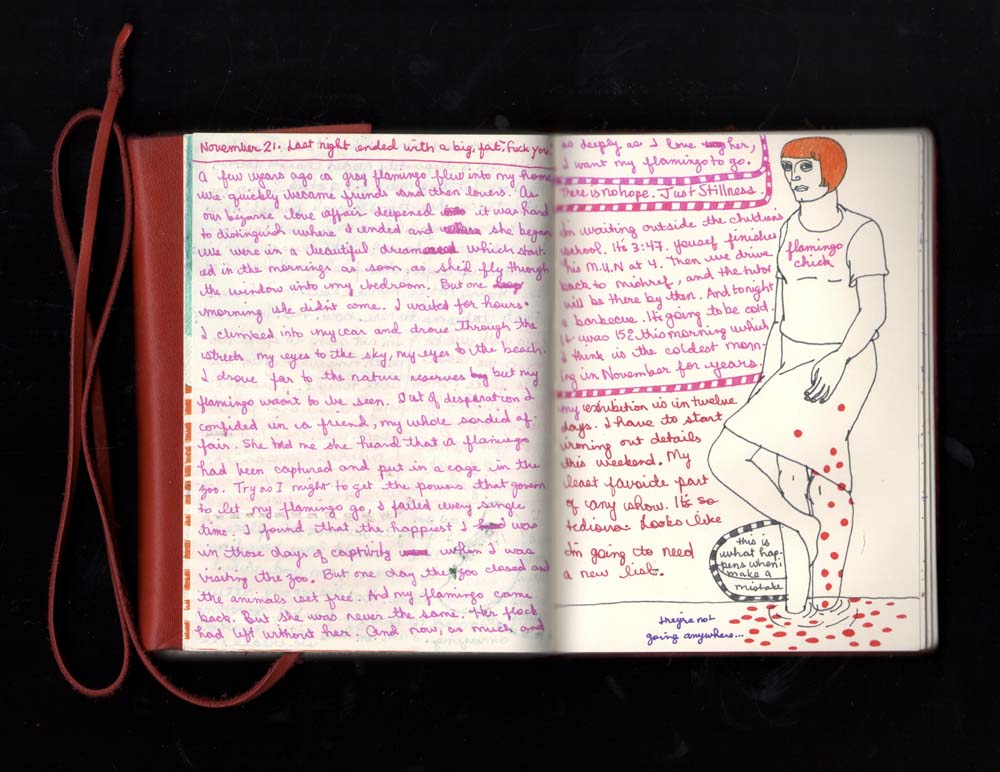 November 21. Last night ended with a big, fat, Fuck you.
A few years ago a gray flamingo flew into my home
we quickly became friends and then lovers. As
our bizarre love affair deepened it was hard
to distinguish where I ended and she began
We were in a beautiful dream which start-
ed in the mornings as soon as she'd fly through
the window into my bedroom. But one
morning she didn't come. I waited for hours.
I climbed into my car and drove through the
streets my eyes to the sky, my eyes to the beach.
I drove far to the nature reserves but my
flamingo wasn't to be seen. Out of desperation I
confided in a friend, my whole sordid af-
fair. She told me she heard that a flamingo
had been captured and put in a cage in the
zoo. Try as I might to get the powers that govern
to let my flamingo go, I failed every single
time. I found that the happiest I was
in those days of captivity when I was
visiting the zoo. But one day the zoo closed and
the animals set free. And my flamingo came
back. But she was never the same. Her flock
had left without her. And now, as much and
as deeply as I love her,
I want my flamingo to go.
There is no hope. Just Stillness.
I'm waiting outside the childrens
school. It's 3:47. Yousef finishes
his M.U.N at 4. Then we drive
back to mishref, and the tutor
will be there by then. And tonight
a barbecue. It's going to be cold.
It was 15? this morning which
I think is the coldest morn-
ing in November for years.
my exhibition is in twelve
days. I have to start
ironing out details
this weekend. My
least favorite part
of any show. It's so
tedious. Looks like
I'm going to need
a new list.
flamingo
chick
this is
what hap-
pens when i
make a
mistake
they're not
going anywhere...